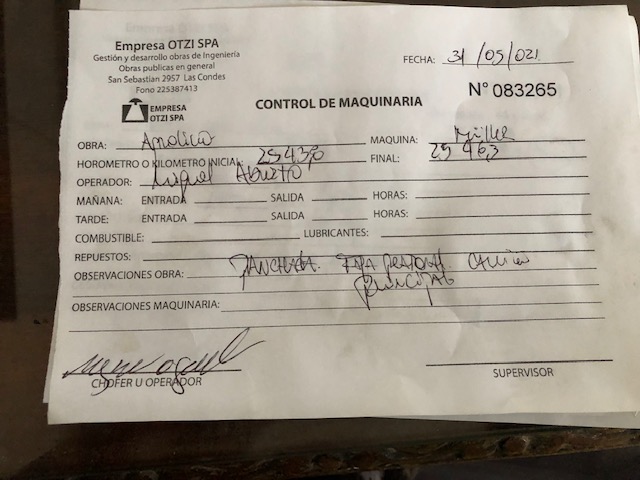 Empresa OTZI SPA
Gestión y desarrollo obras de Ingeniería
Obras publicas en general
San Sebastian 2957 Las Condes
Fono 225387413
FECHA: 31/05/021
EMPRESA
OTZI SPA
CONTROL DE MAQUINARIA
N° 083265
OBRA: Américo MAQUINA:
HOROMETRO O KILOMETRO INICIAL: 254370 FINAL: 254463
OPERADOR: Miguel Abueto
MAÑANA: ENTRADA SALIDA HORAS:
TARDE: ENTRADA SALIDA HORAS:
COMBUSTIBLE: LUBRICANTES:
REPUESTOS:
OBSERVACIONES OBRA:
OBSERVACIONES MAQUINARIA:
CHOFER U OPERADOR
SUPERVISOR